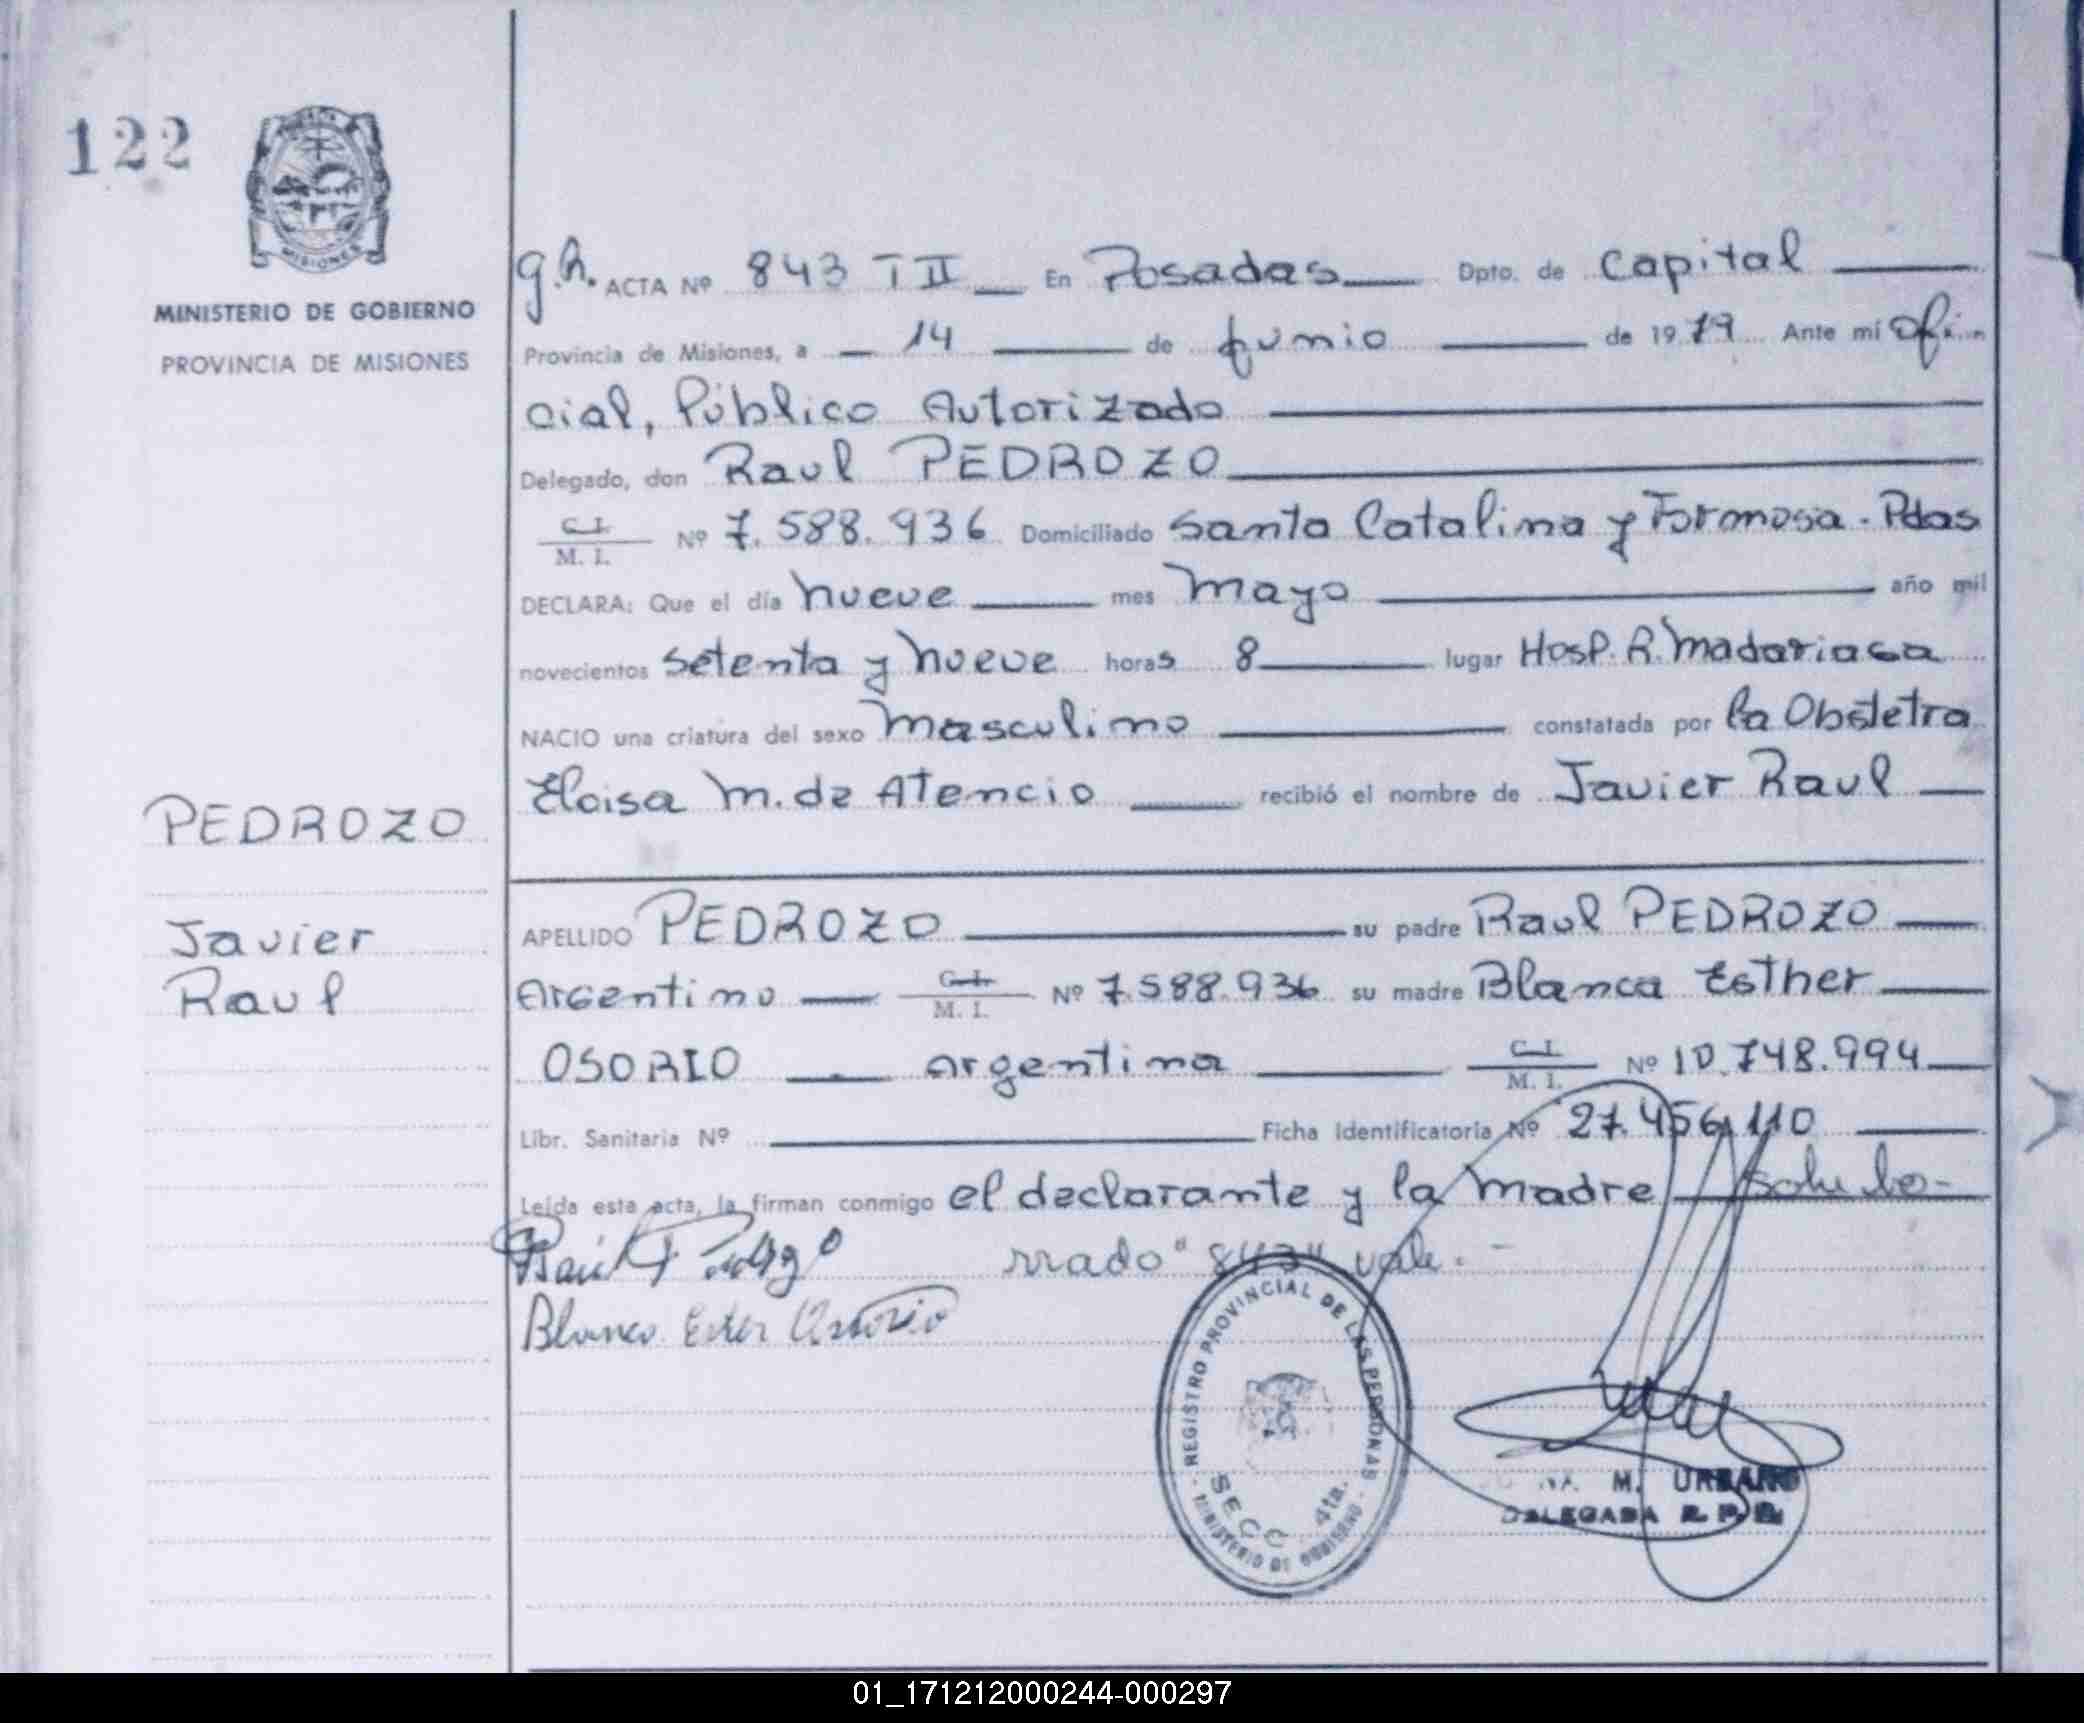 122
MISIONES
MINISTERIO DE GOBIERNO
PROVINCIA DE MISIONES
PEDROZO
Javier
Raul
g.h. ACTA Nº 843 T II En Posadas Dpto. de Capital
Provincia de Misiones, a 14 de Junio de 1979 Ante mí Ofi-
cial, Público Autorizado
Delegado, don Raul PEDROZO
C. I.
M. I. Nº 7.588.936 Domiciliado Santa Catalina y Formosa - Pdas
DECLARA: Que el día nueve mes Mayo año mil
novecientos setenta y nueve horas 8 lugar Hosp. R. Madariaga
NACIO una criatura del sexo masculino constatada por la Obstetra
Eloisa M. de Atencio recibió el nombre de Javier Raul
APELLIDO PEDROZO su padre Raul PEDROZO
Argentino C. I.
M. I. Nº 7.588.936 su madre Blanca Esther
OSORIO argentina C. I.
M. I. Nº 10.748.994
Libr. Sanitaria Nº Ficha Identificatoria Nº 27.456.110
Leída esta acta, la firman conmigo el declarante y la madre sobre bo-
rrado "843" vale.-
Blanca Ester Osorio
REGISTRO PROVINCIAL DE LAS PERSONAS
SECC. 4ta.
MINISTERIO DE GOBIERNO
M. URBANO
DELEGADA R. P. P.
01_171212000244-000297